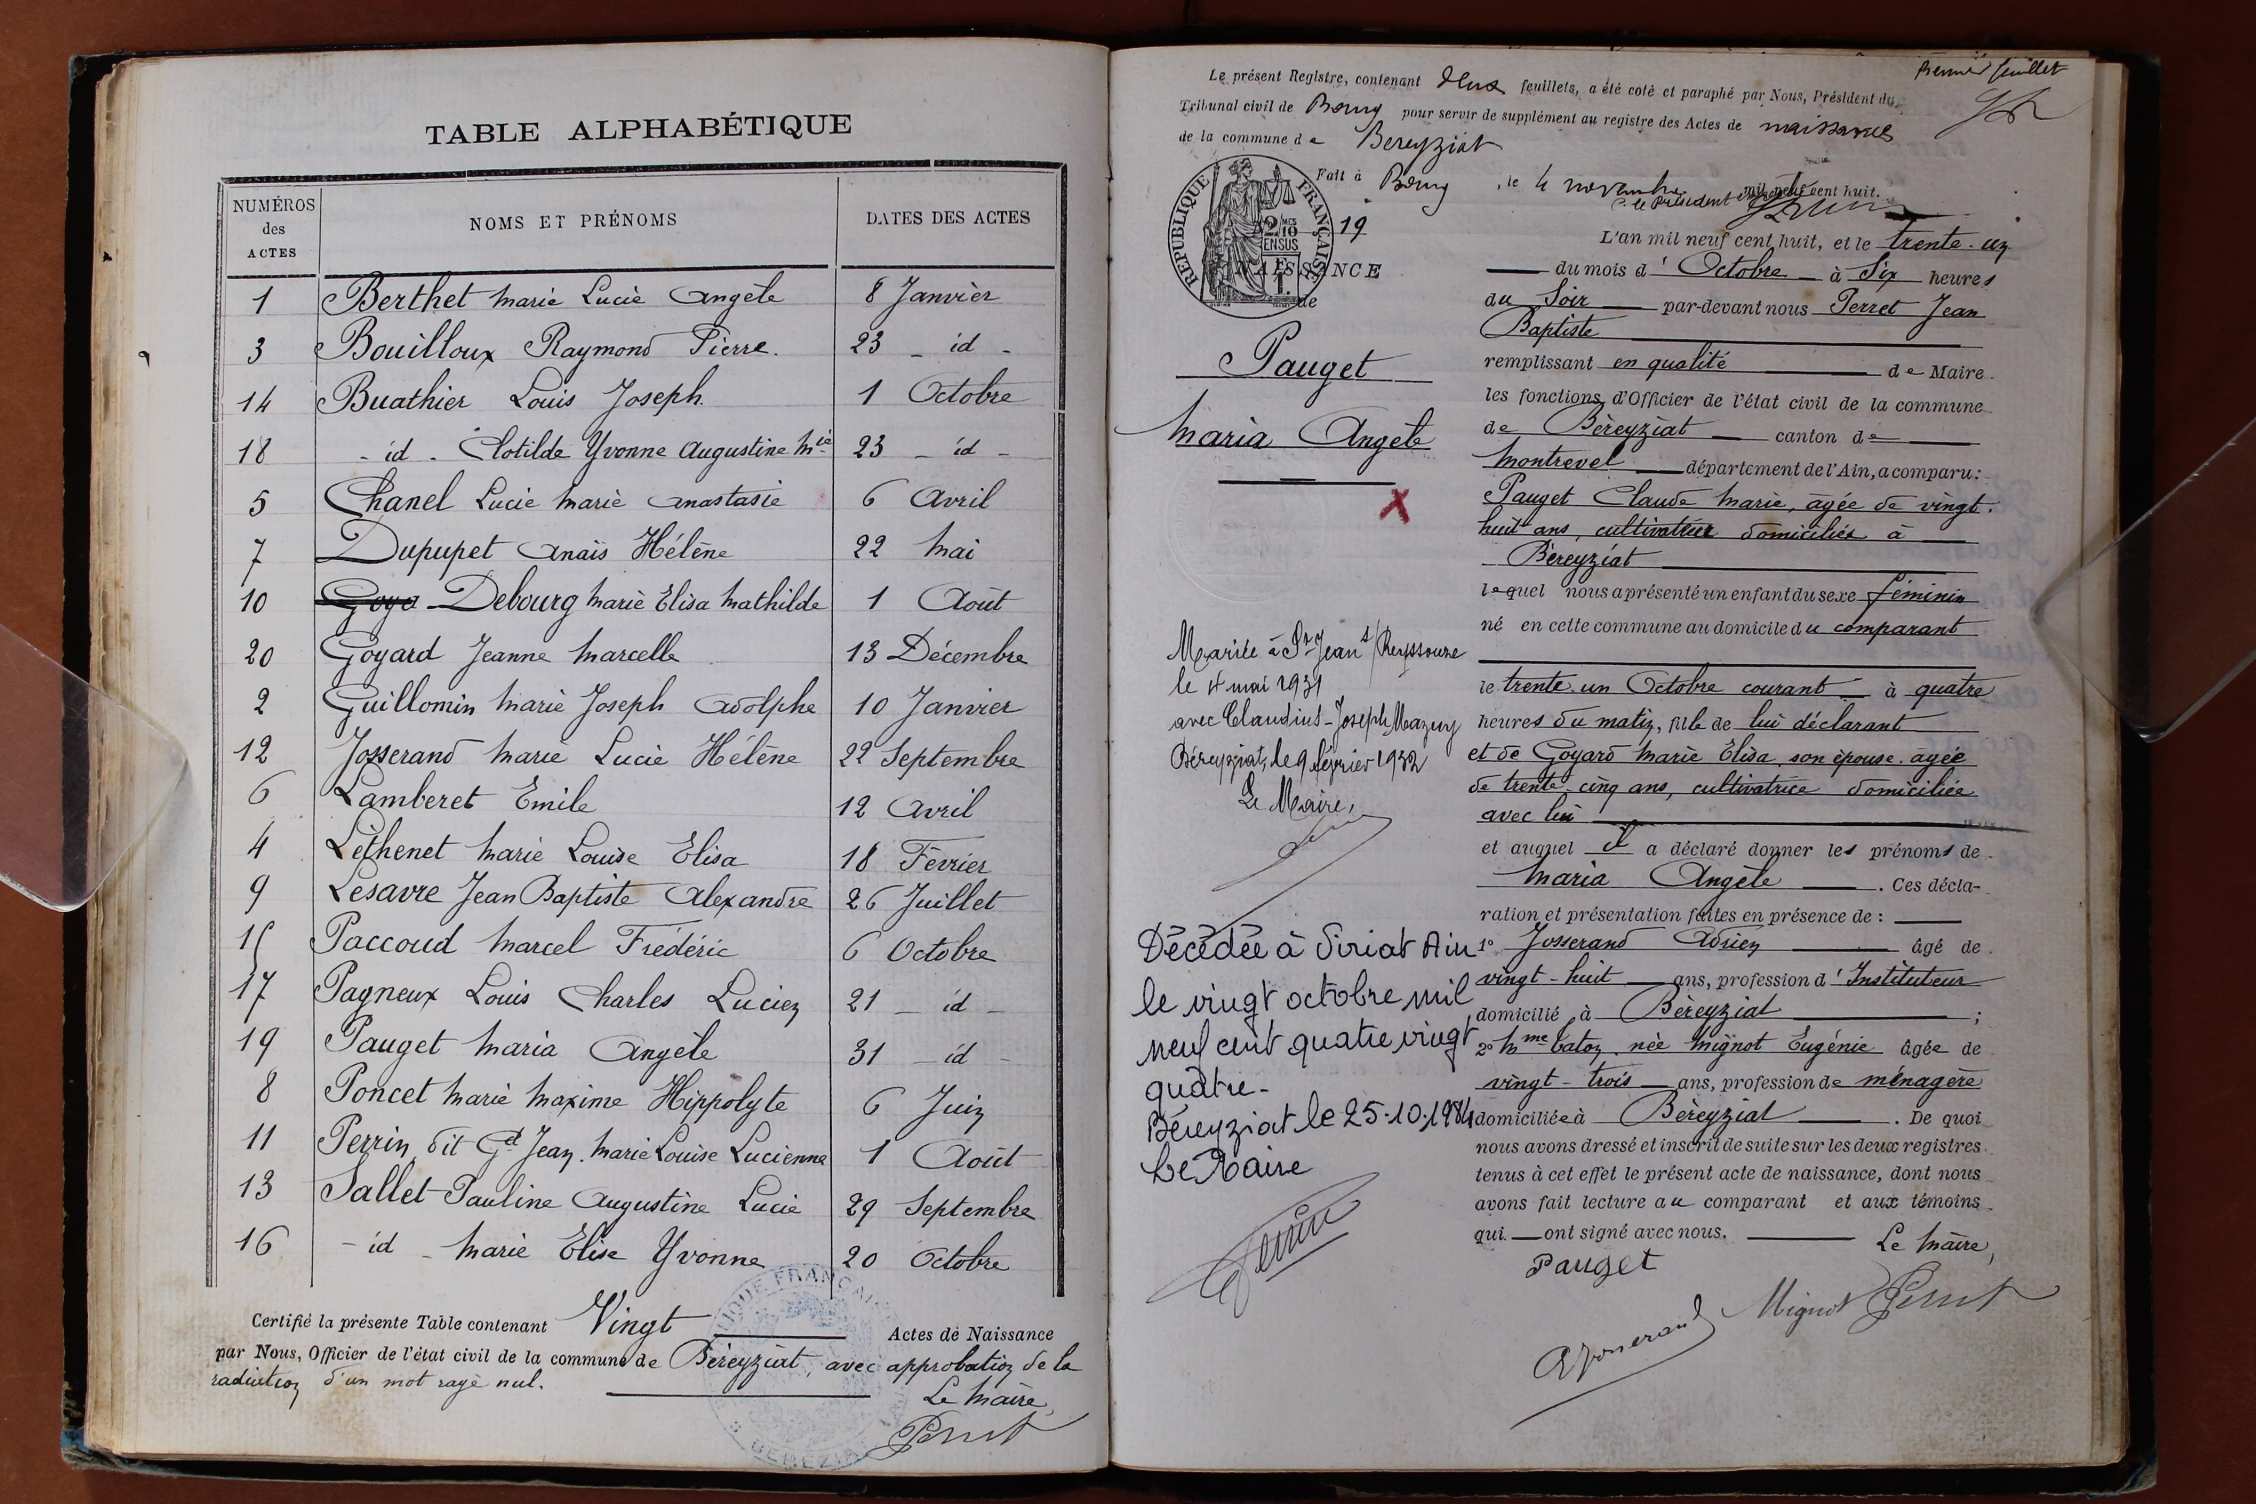 TABLE ALPHABÉTIQUE
NUMÉROS des ACTES NOMS ET PRÉNOMS DATES DES ACTES
1 Berthet Marie Lucie Angèle 8 Janvier
3 Bouilloux Raymond Pierre. 23 - id -
14 Buathier Louis Joseph. 1 Octobre
18 - id - Clotilde Yvonne Augustine Mie 23 - id -
5 Chanel Lucie Marie Anastasie 6 Avril
7 Dupupet Anaïs Hélène 22 Mai
10 Goya Debourg Marie Elisa Mathilde 1 Août
20 Goyard Jeanne Marcelle 13 Décembre
2 Guillomin Marie Joseph Adolphe 10 Janvier
12 Josserand Marie Lucie Hélène 22 Septembre
6 Lamberet Emile 12 Avril
4 Léthenet Marie Louise Elisa 18 Février
9 Lesavre Jean Baptiste Alexandre 26 Juillet
15 Paccoud Marcel Frédéric 6 Octobre
17 Pagneux Louis Charles Lucien 21 - id -
19 Pauget Maria Angèle 31 - id -
8 Poncet Marie Maxime Hippolyte 6 Juin
11 Perrin dit Gd Jean. Marie Louise Lucienne 1 Août
13 Sallet Pauline Augustine Lucie 29 Septembre
16 - id - Marie Elise Yvonne 20 Octobre
Certifié la présente Table contenant Vingt Actes de Naissance
par Nous, Officier de l'état civil de la commune de Béreyziat, avec approbation de la
radiation d'un mot rayé nul.
Le Maire,
Perret
Premier feuillet
Le présent Registre, contenant deux feuillets, a été coté et paraphé par Nous, Président du
Tribunal civil de Bourg pour servir de supplément au registre des Actes de naissances
de la commune de Béreyziat
Fait à Bourg, le 4 novembre mil neuf cent huit.
Le Président
RÉPUBLIQUE FRANÇAISE
2/10 EN SUS
1 F.
19
NAISSANCE
de
Pauget
Maria Angèle
Mariée à St Jean s/Reyssouze
le 4 mai 1931
avec Claudius-Joseph Mazuy
Béreyziat, le 9 février 1932
Le Maire,
Décédée à Viriat Ain
le vingt octobre mil
neuf cent quatre vingt
quatre -
Béreyziat le 25.10.1984
Le Maire
L'an mil neuf cent huit, et le trente-un
du mois d'Octobre à Six heures
du Soir par-devant nous Perret Jean
Baptiste
remplissant en qualité de Maire
les fonctions d'Officier de l'état civil de la commune
de Béreyziat canton de
Montrevel département de l'Ain, a comparu:
Pauget Claude Marie, agée de vingt-
huit ans, cultivateur domiciliée à
Béreyziat
lequel nous a présenté un enfant du sexe féminin
né en cette commune au domicile du comparant
le trente un Octobre courant à quatre
heures du matin, fille de lui déclarant
et de Goyard Marie Elisa, son épouse, agée
de trente-cinq ans, cultivatrice domiciliée
avec lui
et auquel il a déclaré donner les prénoms de
Maria Angèle. Ces décla-
ration et présentation faites en présence de :
1° Josserand Adrien âgé de
vingt-huit ans, profession d'Instituteur
domicilié à Béreyziat ;
2° Mme Caton née Mignot Eugénie âgée de
vingt-trois ans, profession de ménagère
domiciliée à Béreyziat. De quoi
nous avons dressé et inscrit de suite sur les deux registres
tenus à cet effet le présent acte de naissance, dont nous
avons fait lecture au comparant et aux témoins
qui ont signé avec nous.
Le Maire,
Pauget
Mignot Perret
A Josserand